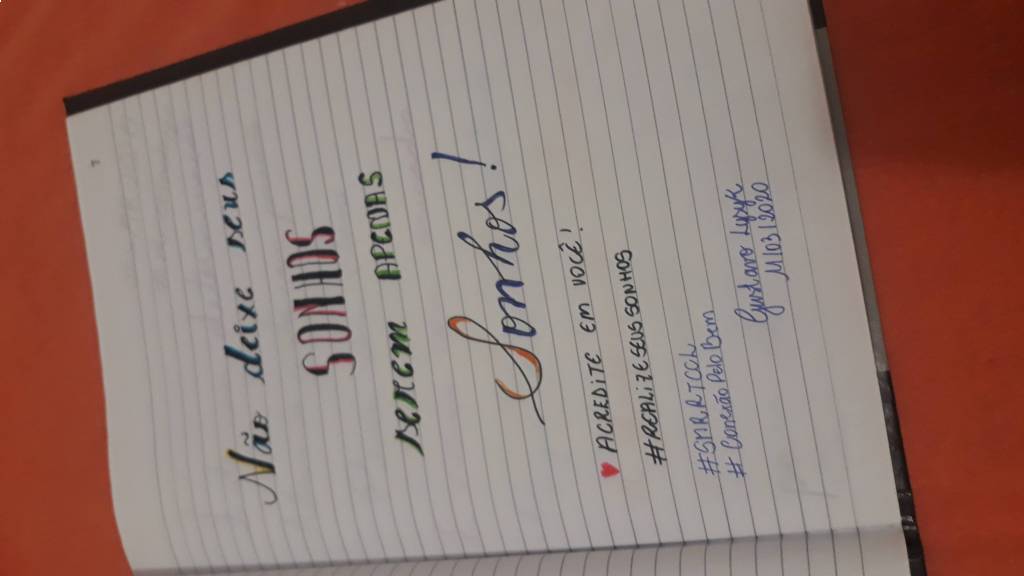 Não deixe seus
SONHOS
serem APENAS
Sonhos!
ACREDITE EM VOCÊ!
#REALIZESEUSSONHOS
#SMARTCCL
#ConexãoPeloBem
Gustavo
11/03/2020